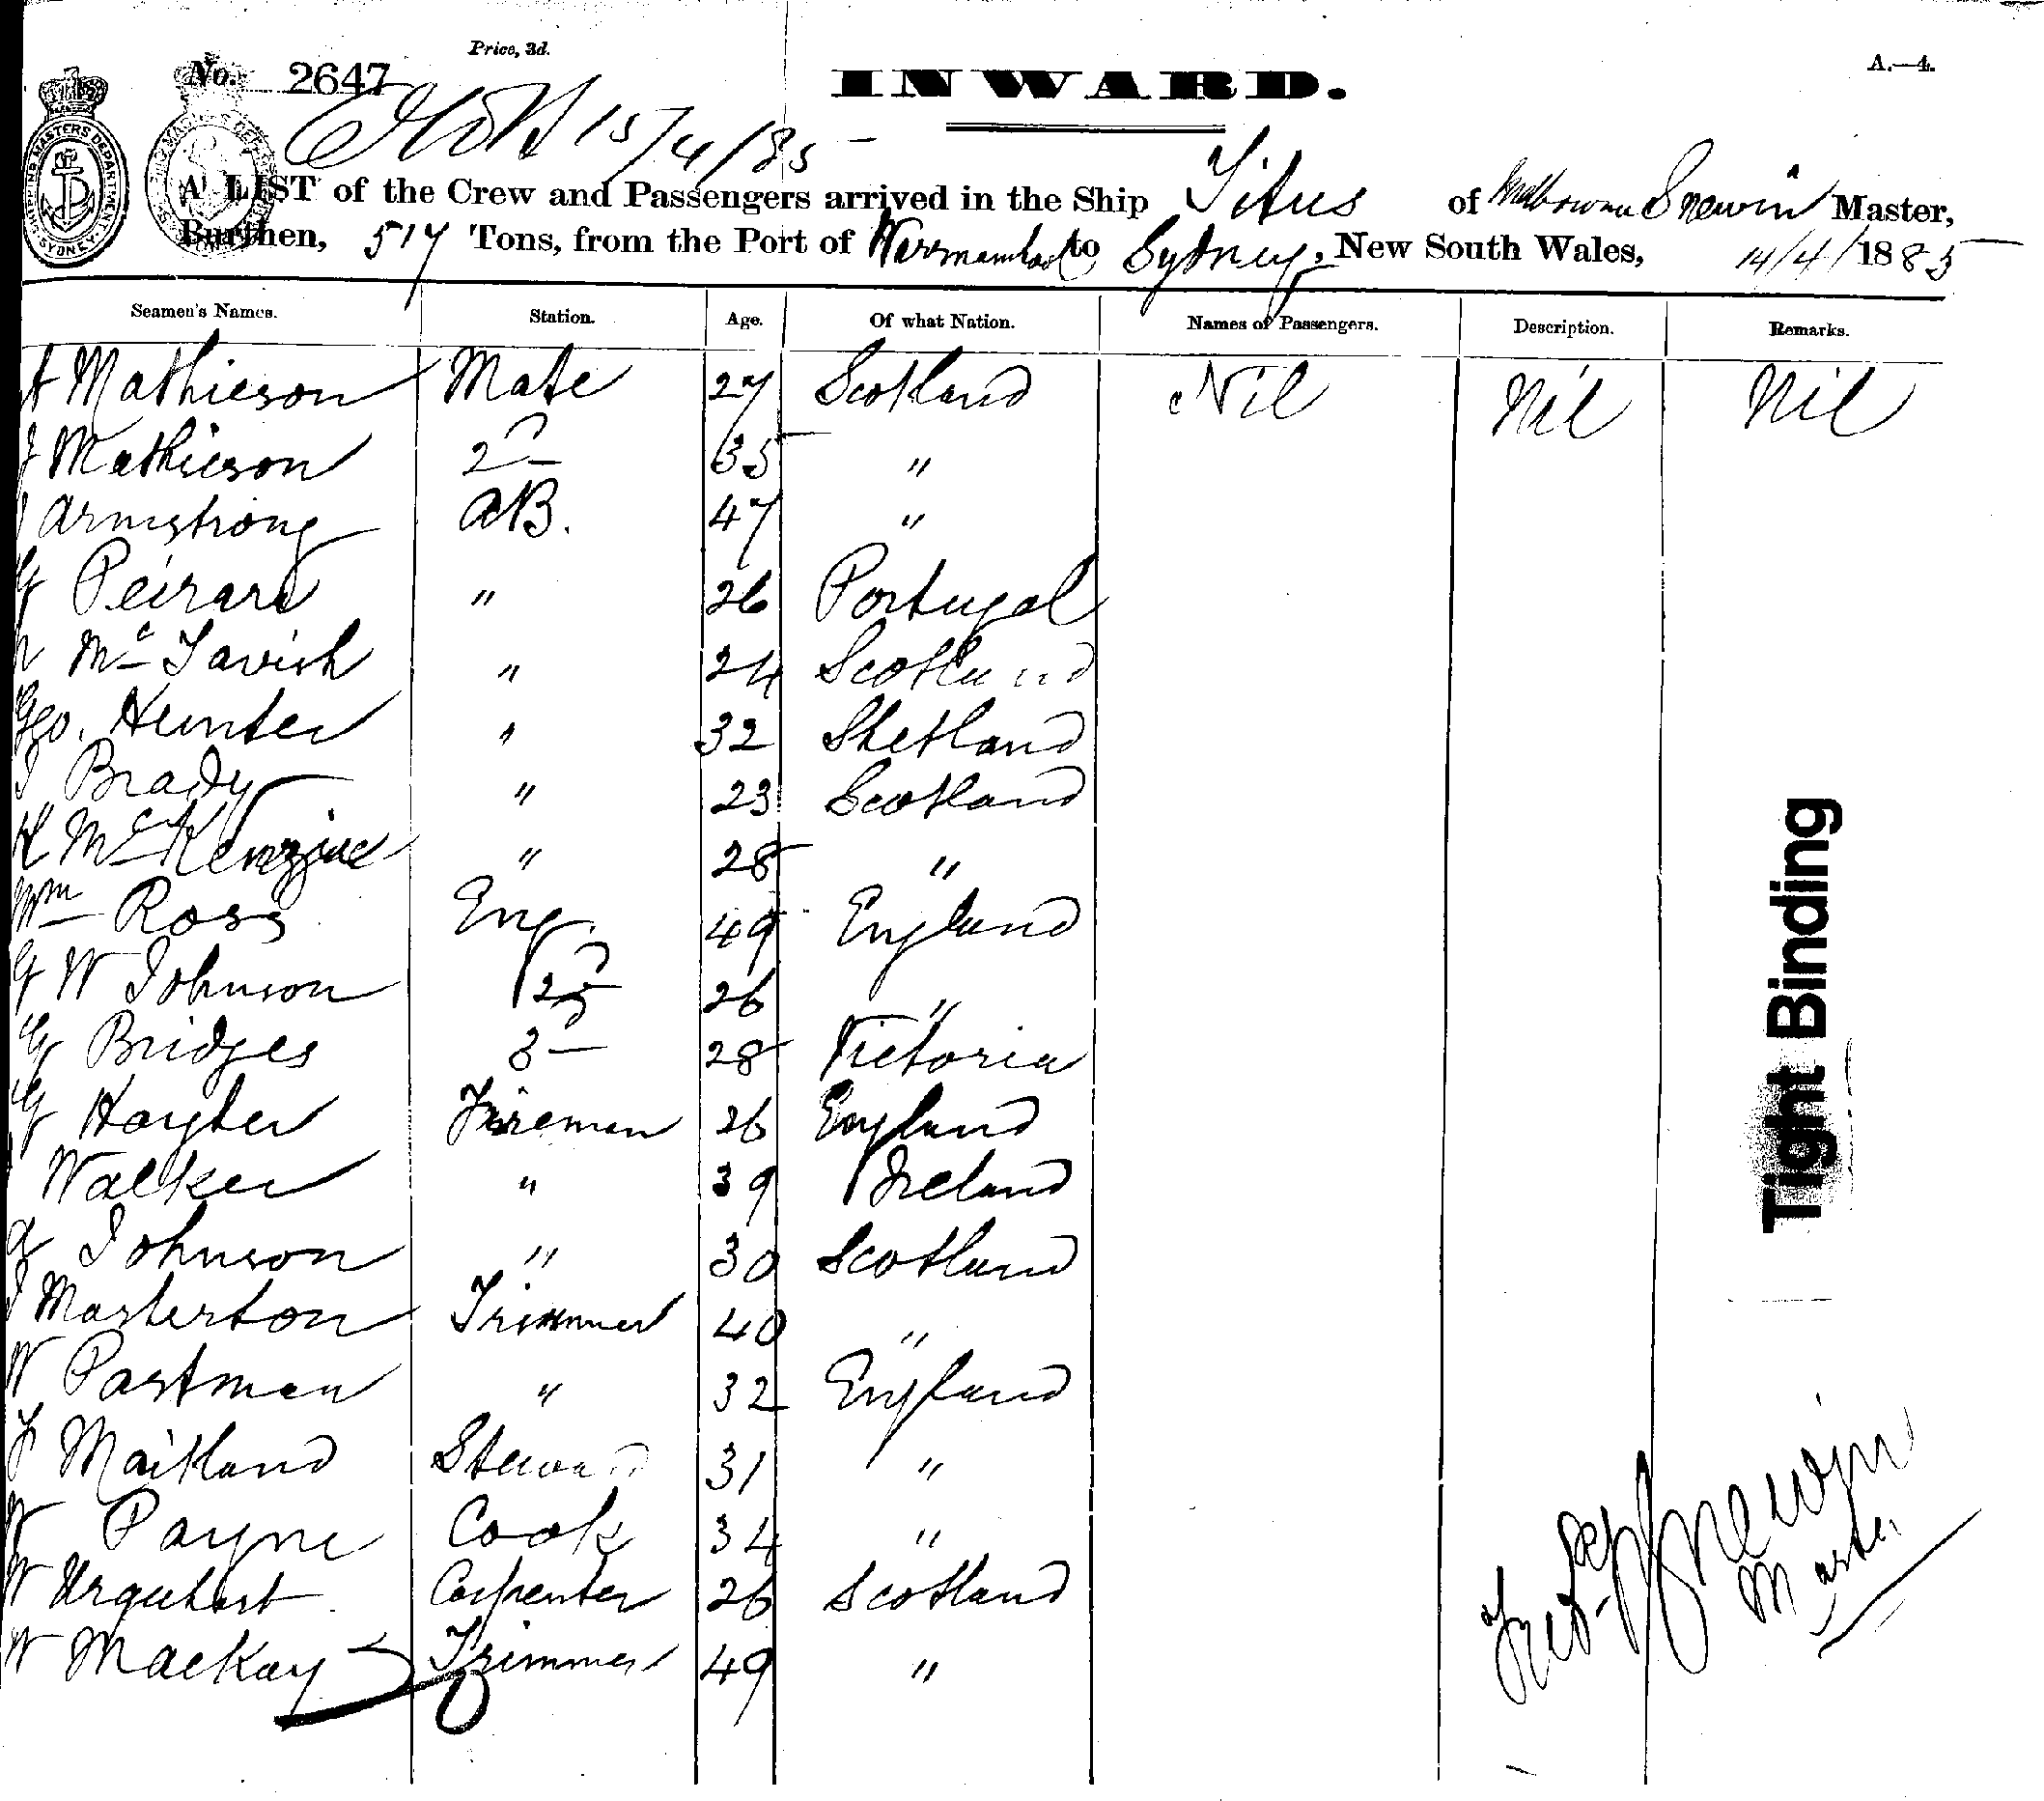 Price, 3d.
No. 2647
INWARD.
A.—4.
15/4/85
SHIPPING MASTERS DEPARTMENT. SYDNEY
A LIST of the Crew and Passengers arrived in the Ship Titus of Melbourne Snewin Master,
Burthen, 517 Tons, from the Port of to Sydney, New South Wales, 14/4/1885
Seamen's Names. Station. Age. Of what Nation. Names of Passengers. Description. Remarks.
A Mathieson Mate 27 Scotland Nil Nil Nil
J Mathieson 2d 35 "
J Armstrong AB. 47 "
G Peirara " 26 Portugal
McTavish " 24 Scotland
Geo. Hunter " 32 Shetland
J Brady " 23 Scotland
K McKenzie " 28 "
Wm Ross Eng. 49 England
G W Johnson 2d 26 "
G Bridges 3d 28 Victoria
G Hayter Fireman 26 England
Walker " 39 Ireland
G Johnson " 30 Scotland
J Masterton Trimmer 40 "
W Partman " 32 England
F Maitland Steward 31 "
W Payne Cook 34 "
W Urquhart Carpenter 26 Scotland
W Mackay Trimmer 49 "
Tight Binding
Snewin
Master